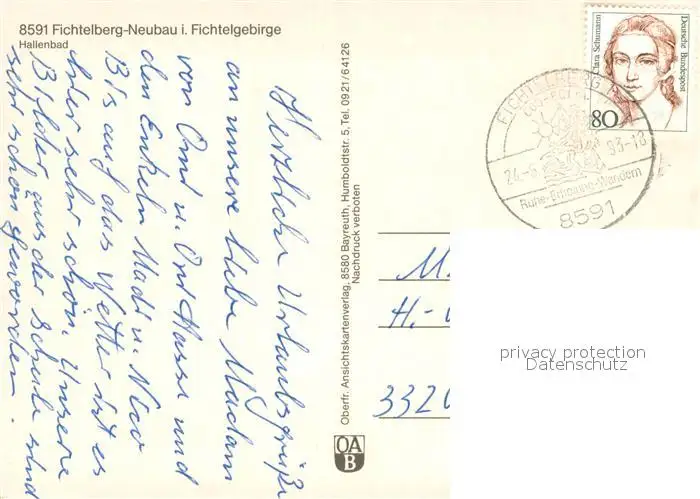 8591 Fichtelberg-Neubau i. Fichtelgebirge
Hallenbad
Herzliche Urlaubsgrüße
an unsere liebe Madam
von Omi u. Opi Hasse und
den Enkeln Madi u. Nico
Bis auf das Wetter ist es
hier sehr schön. Unsere
Bilder aus der Schule sind
sehr schön geworden.
Oberfr. Ansichtskartenverlag, 8580 Bayreuth, Humboldtstr. 5, Tel. 0921/64126
Nachdruck verboten
OA
B
Clara Schumann
Deutsche Bundespost
80
FICHTELBERG
24.-6
93-18
Ruhe-Erholung-Wandern
8591
M.
H.-
3320
privacy protection
Datenschutz